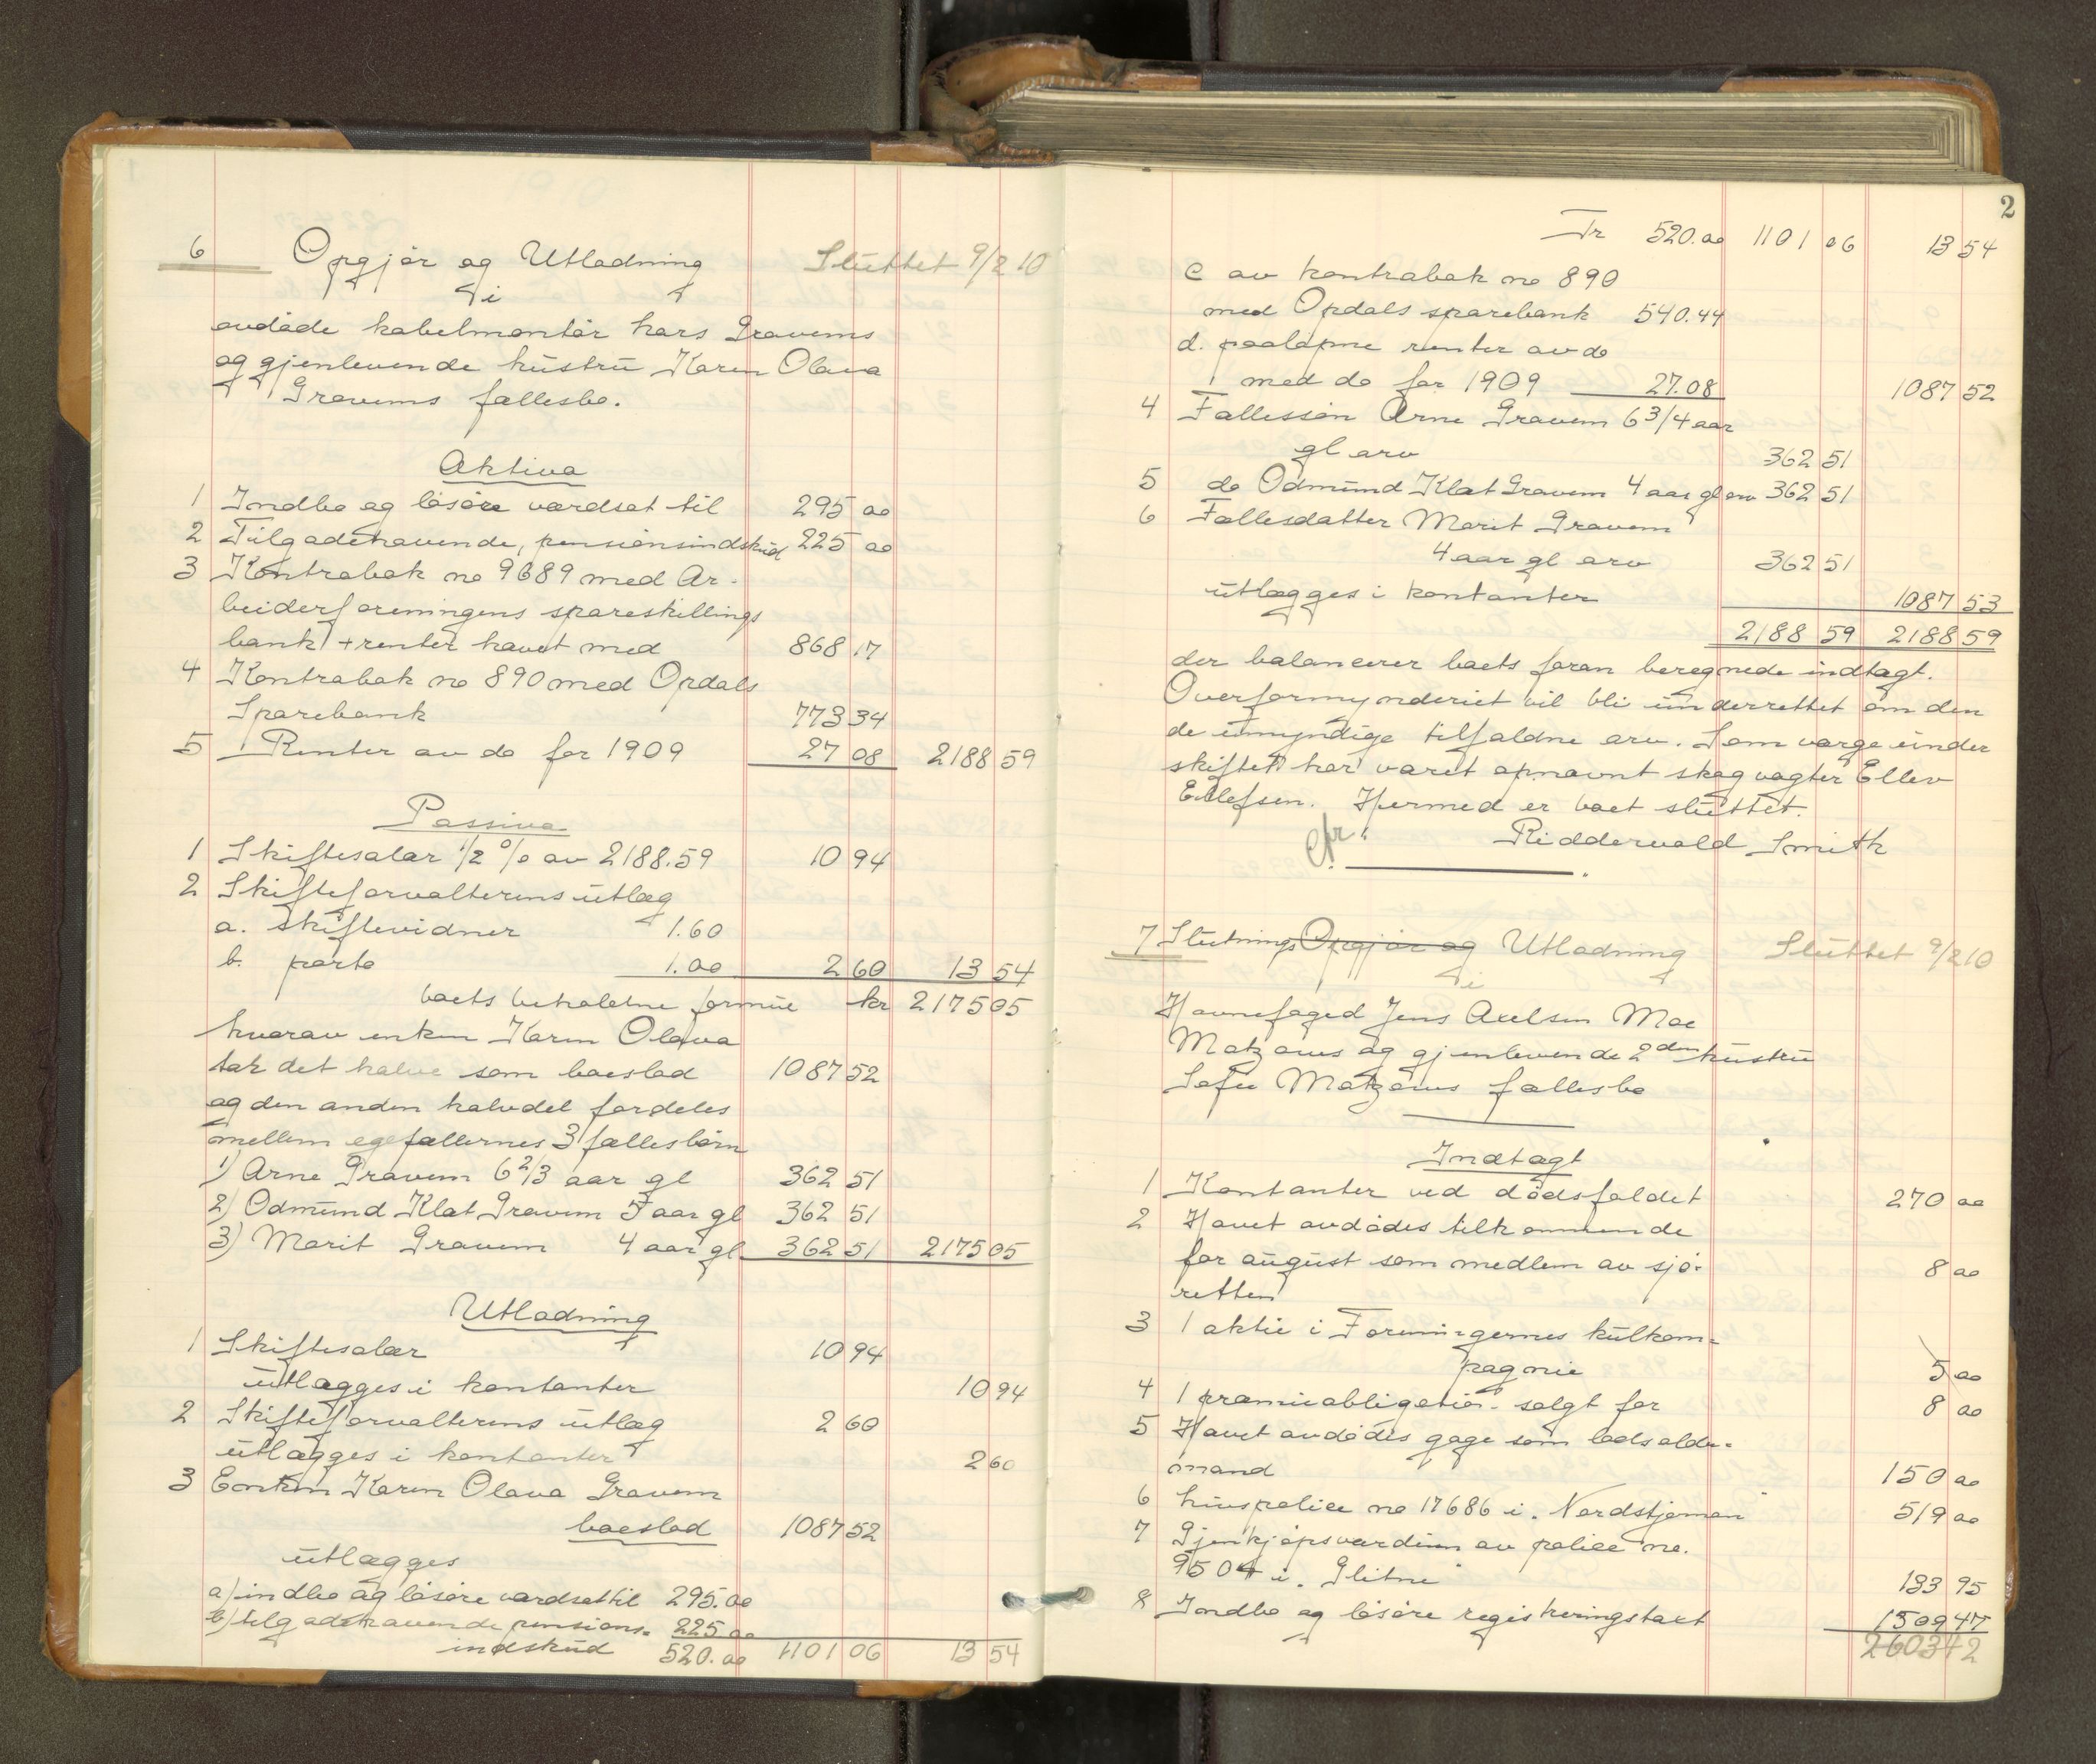 6 Opgjør og Utlodning Sluttet 9/2 10
i
avdøde kabelmontør Lars Gravems
og gjenlevende hustru Karen Olava
Gravems fællesbo.
Aktiva
1 Indbo og løsøre værdsat til 295 00
2 Tilgodehavende, pensionsindskud 225 00
3 Kontrabok no 9689 med Ar-
beiderforeningens spareskillings
bank + renter hævet med 868 17
4 Kontrabok no 890 med Opdals
Sparebank 773 34
5 Renter av do for 1909 27 08 2188 59
Passiva
1 Skiftesalær 1/2 % av 2188.59 10 94
2 Skifteforvalterens utlæg
a. skiftevidner 1.60
b. porto 1.00 2 60 13 54
boets beholdne formue kr 2175 05
hvorav enken Karen Olava
tar det halve som boeslod 1087 52
og den anden halvdel fordeles
mellem egtefællernes 3 fællesbørn
1) Arne Gravem 6 2/3 aar gl 362 51
2) Odmund Klat Gravem 5 aar gl 362 51
3) Marit Gravem 4 aar gl 362 51 2175 05
Utlodning
1 Skiftesalær 10 94
utlægges i kontanter 10 94
2 Skifteforvalterens utlæg 2 60
utlægges i kontanter 2 60
3 Enken Karen Olava Gravem
boeslod 1087 52
utlægges
a) indbo og løsøre værdsat til 295.00
b) tilgodehavende pensions- 225.00
indskud 520.00 1101 06 13 54
2
Tr 520.00 1101 06 13 54
c av kontrabok no 890
med Opdals sparebank 540.44
d. paaløpne renter av do
med do for 1909 27.08 1087 52
4 Fællessøn Arne Gravem 6 3/4 aar
gl arv 362 51
5 do Odmund Klat Gravem 4 aar gl arv 362 51
6 Fællesdatter Marit Gravem
4 aar gl arv 362 51
utlægges i kontanter 1087 53
2188 59 2188 59
der balancerer boets foran beregnede indtægt.
Overformynderiet vil bli underrettet om den
de umyndige tilfaldne arv. Som værge under
skiftet har været opnævnt skogvogter Ellev
Ellefsen. Hermed er boet sluttet.
Cfr. Riddervold Smith
7 Slutnings Opgjør og Utlodning Sluttet 9/2 10
i
Havnefoged Jens Axelsen Moe
Matzows og gjenlevende 2den hustru
Sofie Matzows fællesbo
Indtægt
1 Kontanter ved dødsfaldet 270 00
2 Hævet avdødes tilkommende
for august som medlem av sjø-
retten 8 00
3 1 aktie i Foreningernes kulkom-
pagnie 5 00
4 1 præmieobligation solgt for 8 00
5 Hævet avdødes gage som lodsolder-
mand 150 00
6 Livspolice no 17686 i "Nordstjernen" 519 00
7 Gjenkjøpsværdien av police no.
9504 i "Glitne" 133 95
8 Indbo og løsøre registreringstaxt 1509 47
2603 42